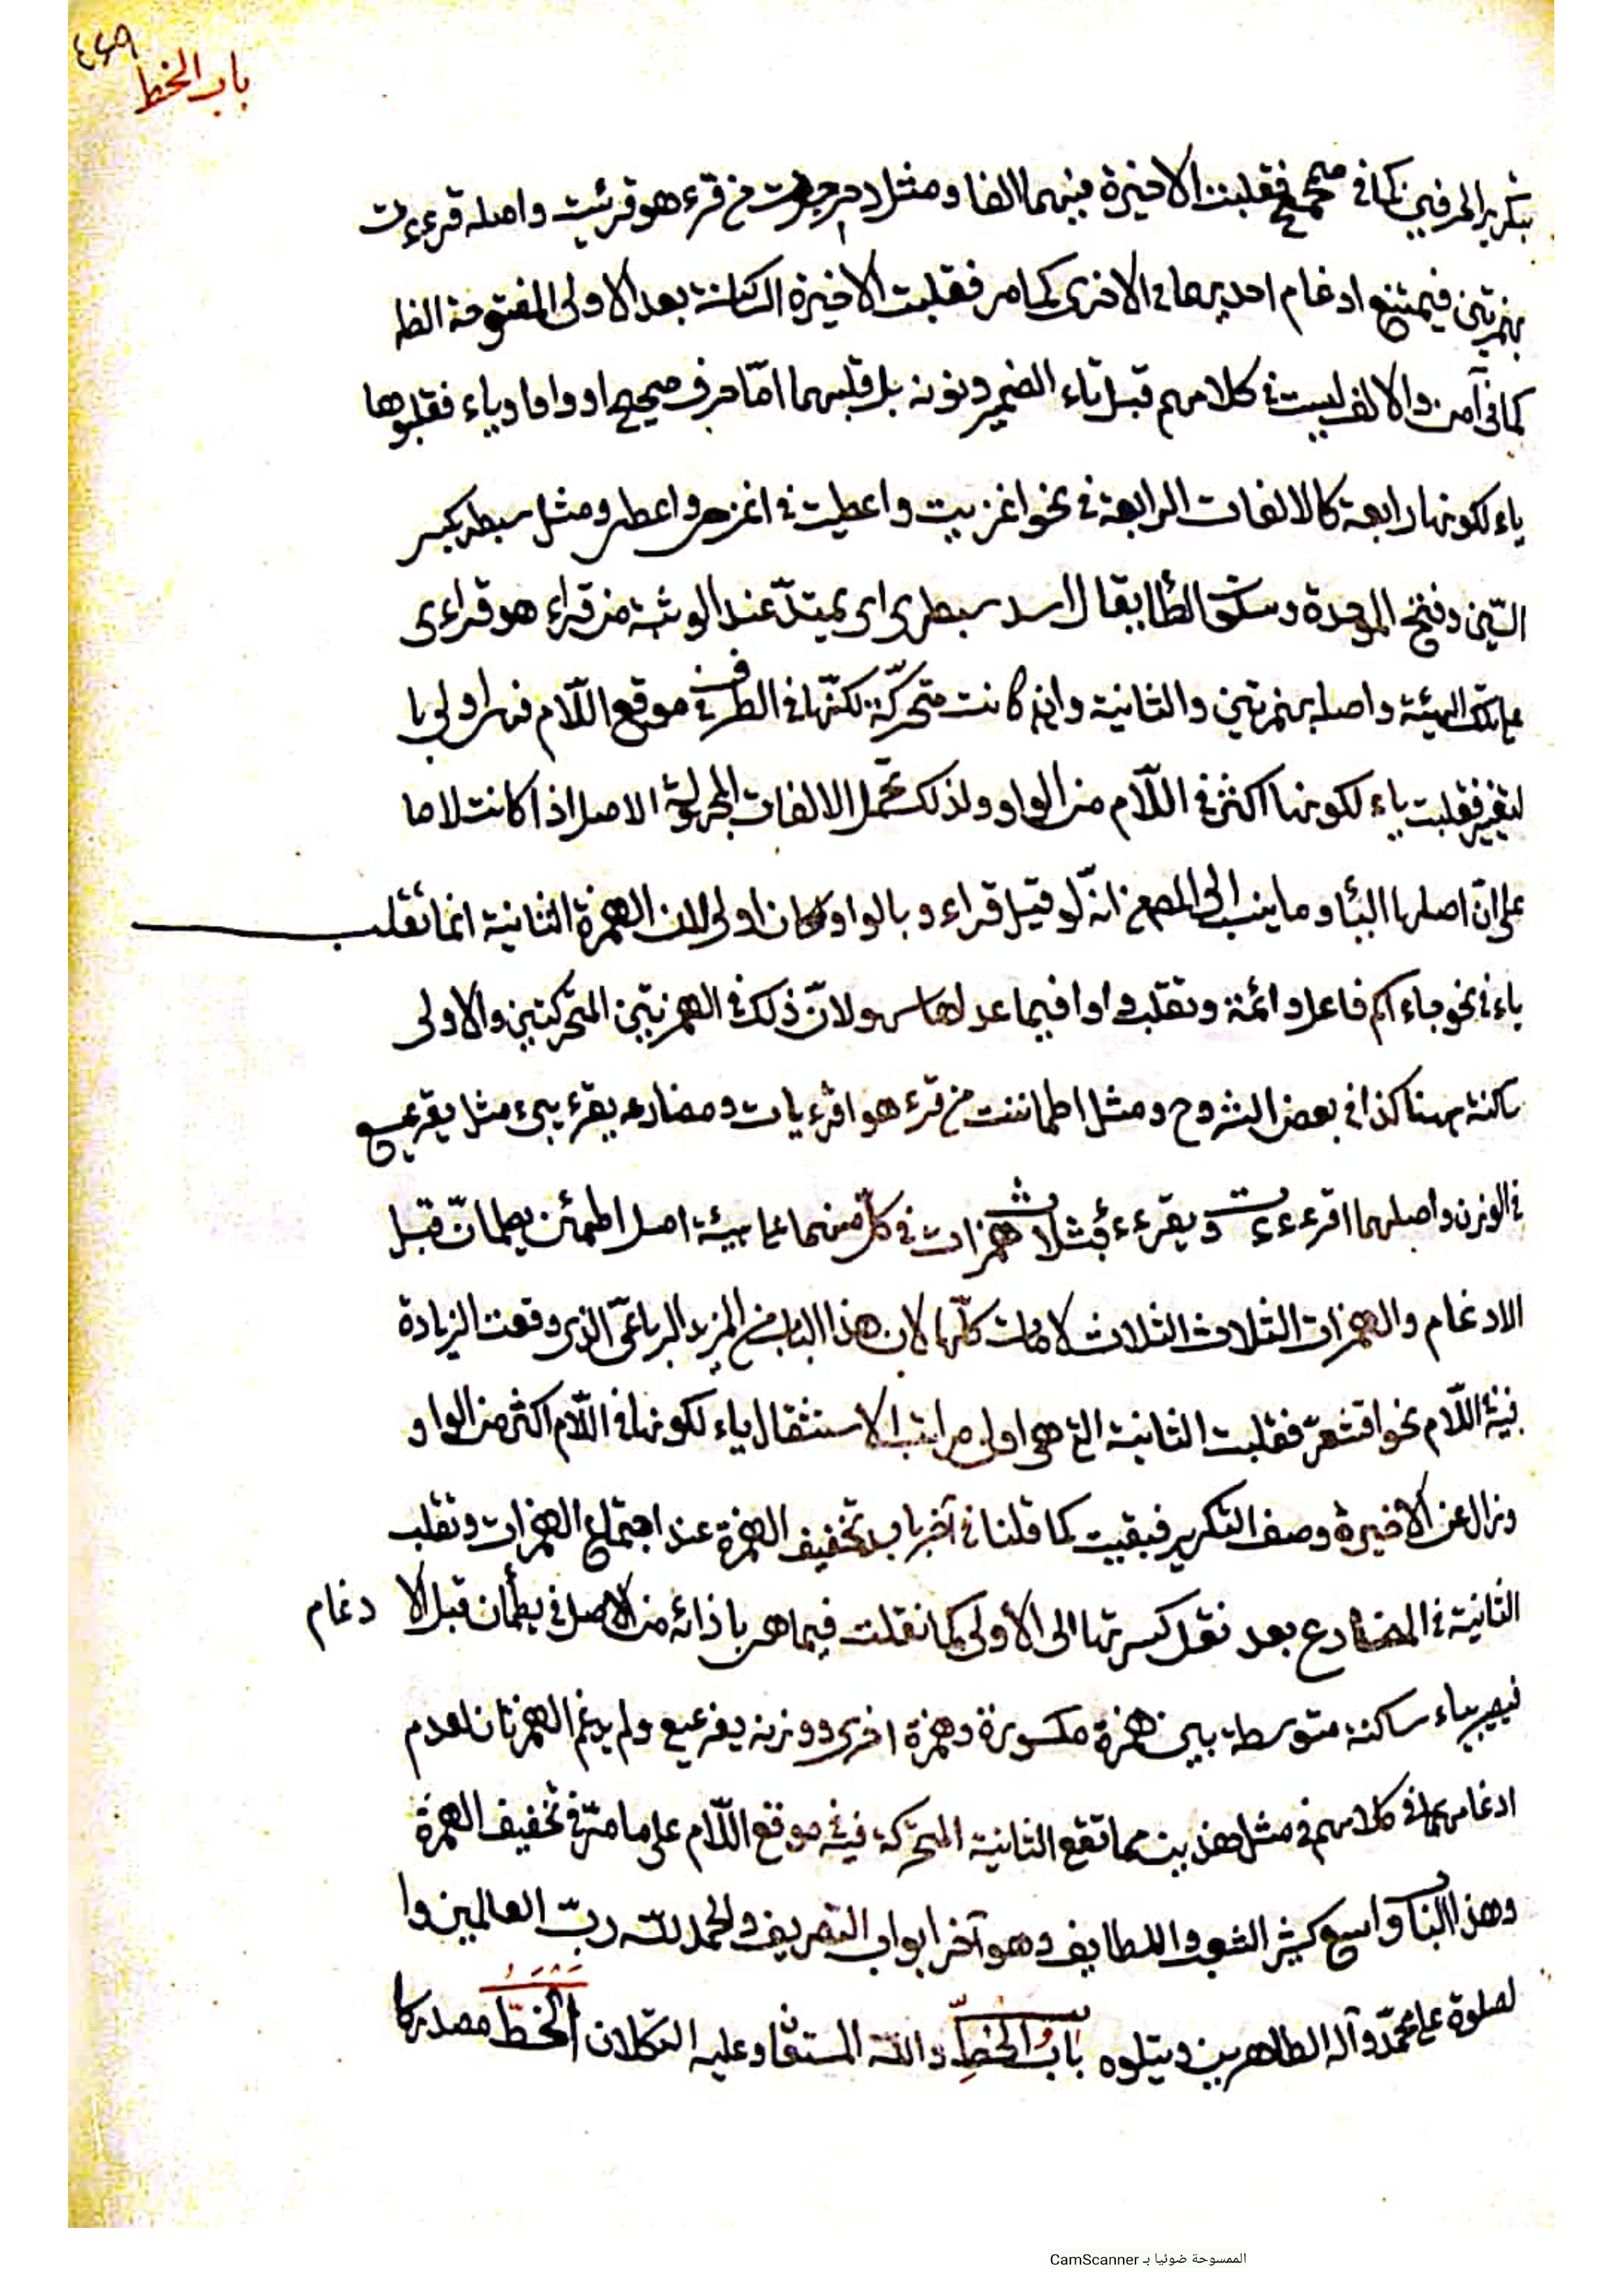 ٤٤٩
باب الخط
بتكرير الحرفين كما في محمح فقلبت الاخيرة منهما الفا ومثل دحرجت من قرء هو قرئيت واصله قرءءت
بهمزتين فيمتنع ادغام احديهما في الاخرى كما مر فقلبت الاخيرة الساكنة بعد الاولى المفتوحة الفا
كما في آمن والالف ليست في كلامهم قبل تاء الضمير ونونه بل قبلهما امّا حرف صحيح او واو او ياء فقلبوها
ياء لكونها رابعة كالالفات الرابعة في نحو اغزيت واعطيت في اغزى واعطى ومثل سبطر بكسر
السّين وفتح الموحدة وسكون الطّا يقال اسد سبطر اى يمتدّ عند الوثبة من قراء هو قراءى
على تلك الهيئة واصله بهمزتين والثانية وان كانت متحركّة لكنّها في الطرف في موقع اللّام فهى اولى با
لتغيير فقلبت ياء لكونها اكثر في اللّام من الواو ولذلك تحمل الالفات المجهولة الاصل اذا كانت لاما
على انّ اصلها اليّاء وما ينسب الى المص من انّه لو قيل قراءو بالواو لكان اولى لان الهمزة الثانية انما تقلب
ياء في نحو جاء اسم فاعل وائمة وتقلب واوا فيما عداهما سهو لانّ ذلك في الهمزتين المتحركتين والاولى
ساكنة ههنا كذا في بعض الشروح ومثل اطماننت من قرء هو اقرءيات ومضارعه يقرءيىء مثل يقرعيع
في الوزن واصلهما اقرءءءت ويقرءءء بثلاث همزات في كلّ منهما على هيئة اصل اطمئن يطمانّ قبل
الادغام والهمزات الثلاث الثلاث لامات كلّها لان هذا الباب من المزيد الرباعىّ الذى وقعت الزيادة
فيه في اللّام نحو اقشعرّ فقلبت الثانية التى هى اولى مراتب الاستثقال ياء لكونها في اللّام اكثر من الواو
وزال عن الاخيرة وصف التكرير فبقيت كما قلنا في آخر باب تخفيف الهمزة عند اجتماع الهمزات وتقلب
الثانية في المضارع بعد نقل كسرتها الى الأولى كما نقلت فيما هو باذائه من الاصل في يطمأن قبل الا دغام
فيصير ياء ساكنة متوسطة بين همزة مكسورة وهمزة اخرى ووزنه يفرعيع ولم يدغم الهمزتان لعدم
ادغامهما في كلامهم في مثل هذين مما تقع الثانية المتحركة فيه في موقع اللّام على ما مرّ في تخفيف الهمزة
وهذا الباب واسع كثير الشعب واللطايف وهو آخر ابواب التصريف والحمد للّه ربّ العالمين وا
لصلوة على محمّد وآله الطاهرين ويتلوه بابُ الخطِّ واللّه المستعان وعليه التكلان الخطّ مصدر كا
الممسوحة ضوئيا بـ CamScanner